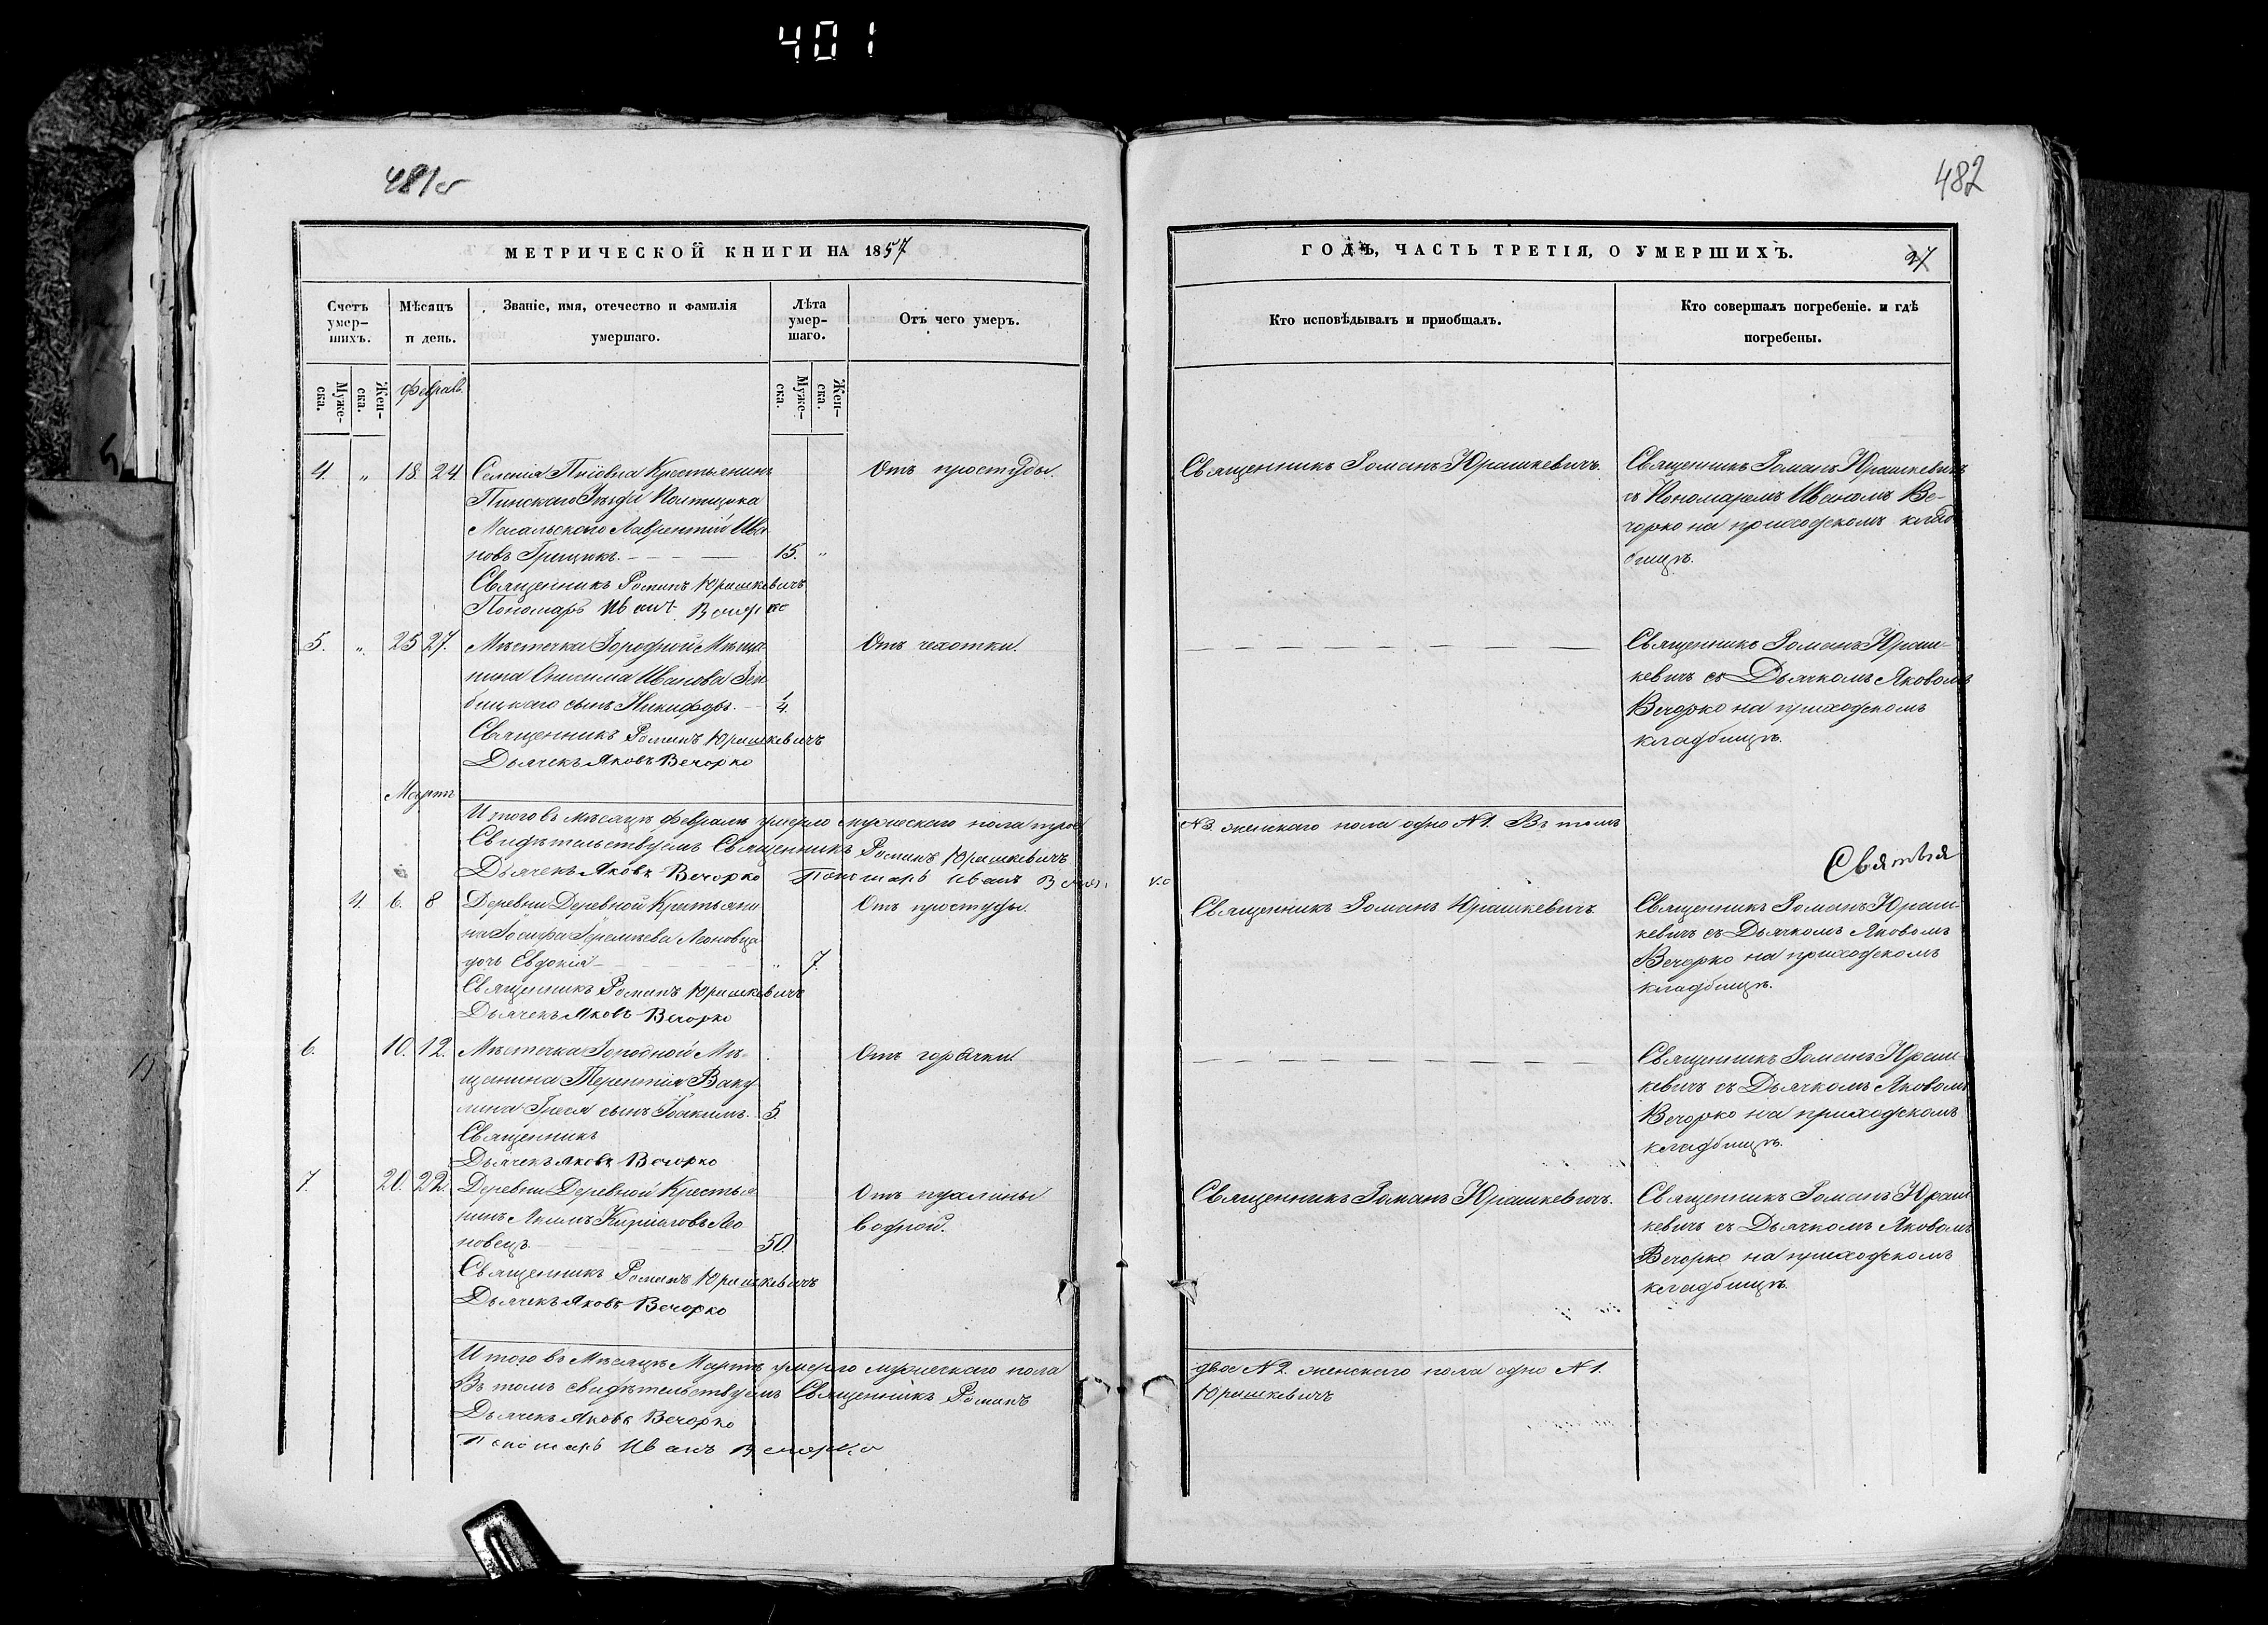 401
481об
482
МЕТРИЧЕСКОЙ КНИГИ НА 1857
ГОДЪ, ЧАСТЬ ТРЕТІЯ, О УМЕРШИХЪ.
27
Счетъ умер-шихъ.
Мѣсяцъ и день.
Званіе, имя, отечество и фамилія умершаго.
Лѣта умер-шаго.
Отъ чего умеръ.
Кто исповѣдывалъ и пріобщалъ.
Кто совершалъ погребеніе. и гдѣ погребены.
Муже-ска.
Жен-ска.
Февраль
Муже-ска.
Жен-ска.
4. „ 18. 24.
Крестьянинъ
Пинскаго Уѣзда Помѣщика
Масальскаго Лаврентій Ива
новъ Грицукъ. 15. „
Священникъ Романъ Юрашкевичъ
Пономарь Иванъ Вечорко
Отъ простуды.
Священникъ Романъ Юрашкевичъ.
Священникъ Романъ Юрашкевичъ
съ Пономаремъ Иваномъ Ве-
чорко на приходскомъ кладб
ищѣ.
5. „ 25 27.
Мѣстечка Городной Мѣща
нина Онисима Иванова
сынъ Никифоръ. 1/4.
Священникъ Романъ Юрашкевичъ
Дьячекъ Яковъ Вечорко
Отъ чахотки.
Священникъ Романъ Юраш-
кевичъ съ Дьячкомъ Яковомъ
Вечорко на приходскомъ
кладбищѣ.
Мартъ
Итого въ мѣсяцѣ Февралѣ умерло мужескаго пола трое
№3. женскаго пола одно №1. Въ томъ
Свидѣтельствуемъ Священникъ Романъ Юрашкевичъ
Дьячекъ Яковъ Вечорко Пономарь Иванъ Вечорко
Святыя
4. 6. 8
Деревни Деревной Крестьяни
на Іосифа Іеремѣева Леоновца
дочь Евдокія „ 7.
Священникъ Романъ Юрашкевичъ
Дьячекъ Яковъ Вечорко
Отъ простуды.
Священникъ Романъ Юрашкевичъ.
Священникъ Романъ Юраш-
кевичъ съ Дьячкомъ Яковомъ
Вечорко на приходскомъ
кладбищѣ.
6. 10. 12.
Мѣстечка Городной Мѣ-
щанина Терентія Ваку
лина сынъ Іоакимъ. 5.
Священникъ
Дьячекъ Яковъ Вечорко
Отъ горячки
Священникъ Романъ Юраш-
кевичъ съ Дьячкомъ Яковомъ
Вечорко на приходскомъ
кладбищѣ.
7. 20. 22.
Деревни Деревной Крестья
нинъ Лео
новецъ. 50.
Священникъ Романъ Юрашкевичъ
Дьячекъ Яковъ Вечорко
Отъ пухлины
водной.
Священникъ Романъ Юрашкевичъ.
Священникъ Романъ Юраш
кевичъ съ Дьячкомъ Яковомъ
Вечорко на приходскомъ
кладбищѣ.
Итого въ Мѣсяцѣ Мартѣ умерло мужескаго пола
двое №2. женскаго пола одно №1.
Въ томъ свидѣтельствуемъ Священникъ Романъ
Юрашкевичъ
Дьячекъ Яковъ Вечорко
Пономарь Иванъ Вечорко